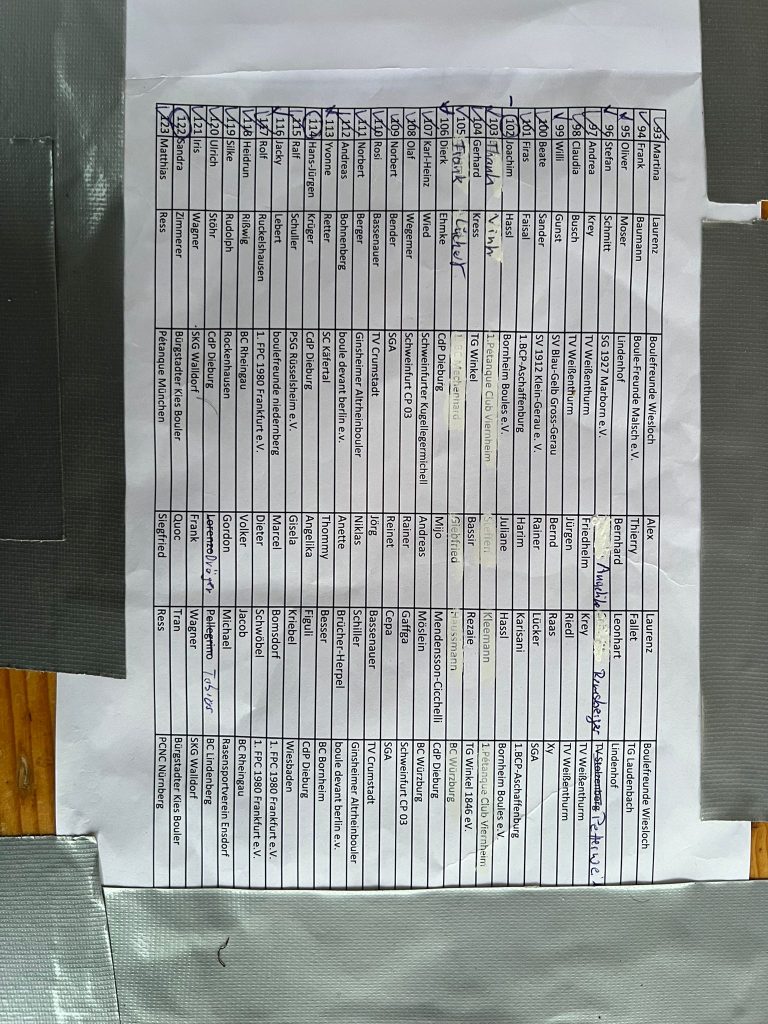 93 Martina Laurenz Boulefreunde Wiesloch Alex Laurenz Boulefreunde Wiesloch
94 Frank Baumann Boule-Freunde Malsch e.V. Thierry Fallet TG Laudenbach
95 Oliver Moser Lindenhof Bernhard Leonhart Lindenhof
96 Stefan Schmitt SG 1927 Marborn e.V.
97 Andrea Krey TV Weißenthurm Friedhelm Krey TV Weißenthurm
98 Claudia Busch TV Weißenthurm Jürgen Riedl TV Weißenthurm
99 Willi Gunst SV Blau-Gelb Gross-Gerau Bernd Raas Xy
100 Beate Sander SV 1912 Klein-Gerau e. V. Rainer Lücker SGA
101 Firas Faisal 1.BCP-Aschaffenburg Harim Karisani 1.BCP-Aschaffenburg
102 Joachim Hassl Bornheim Boules e.V. Juliane Hassl Bornheim Boules e.V.
103 Thanh Vinh 1.Pétanque Club Viernheim Kleemann 1.Pétanque Club Viernheim
104 Gerhard Kress TG Winkel Bassir Rezaie TG Winkel 1846 eV.
105 Frank Siegfried Haussmann BC Würzburg
106 Dierk Ehmke CdP Dieburg Mijo Mendensson-Cicchelli CdP Dieburg
107 Karl-Heinz Wied Schweinfurter Kugellegermichell Andreas Möslein BC Würzburg
108 Olaf Wegemer Schweinfurt CP 03 Rainer Gaffga Schweinfurt CP 03
109 Norbert Bender SGA Reinet Cepa SGA
110 Rosi Bassenauer TV Crumstadt Jörg Bassenauer TV Crumstadt
111 Norbert Berger Ginsheimer Altrheinbouler Niklas Schiller Ginsheimer Altrheinbouler
112 Andreas Bohnenberg boule devant berlin e.v. Anette Brücher-Herpel boule devant berlin e.v.
113 Yvonne Retter SC Käfertal Thommy Besser BC Bornheim
114 Hans-Jürgen Krüger CdP Dieburg Angelika Figuli CdP Dieburg
115 Ralf Schuller PSG Rüsselsheim e.V. Gisela Kriebel Wiesbaden
116 Jacky Lebert boulefreunde niedernberg Marcel Bomsdorf 1. FPC 1980 Frankfurt e.V.
117 Rolf Ruckelshausen 1. FPC 1980 Frankfurt e.V. Dieter Schwöbel 1. FPC 1980 Frankfurt e.V.
118 Heidrun Rißwig BC Rheingau Volker Jacob BC Rheingau
119 Silke Rudolph Rockenhausen Gordon Michael Rasensportverein Ensdorf
120 Ulrich Stöhr CdP Dieburg Lorenzo Dräger Pellegrino Tobias BC Lindenberg
121 Iris Wagner SKG Walldorf Frank Wagner SKG Walldorf
122 Sandra Zimmerer Bürgstadter Kies Bouler Quoc Tran Bürgstadter Kies Bouler
123 Matthias Ress Pétanque München Siegfried Ress PCNC Nürnberg